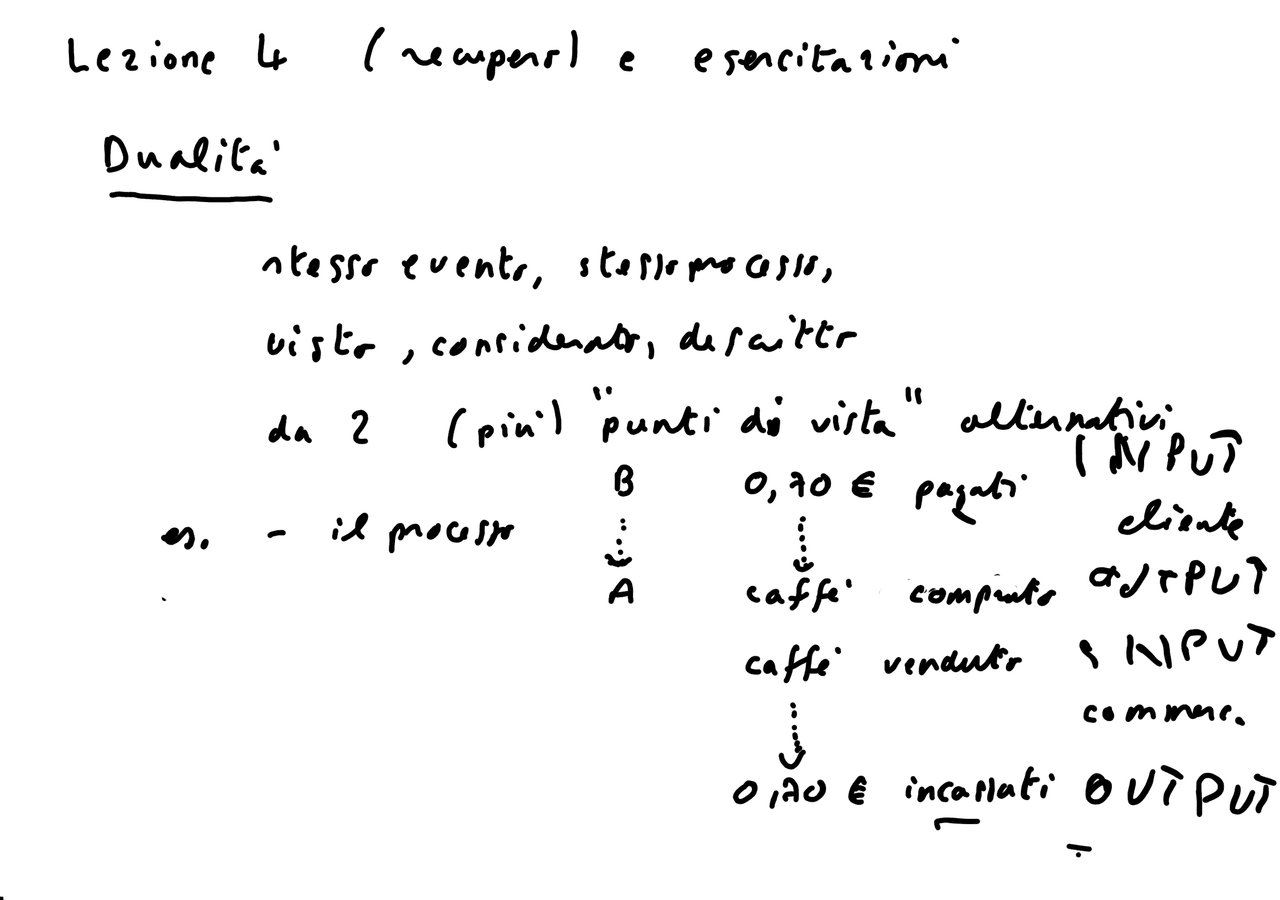 Lezione 4 (recupero) e esercitazioni
Dualità
stesso evento, stesso processo,
visto, considerato, descritto
da 2 (più) "punti di vista" alternativi
INPUT
B 0,70 € pagati
cliente
es. - il processo
A caffè comprato OUTPUT
caffè venduto INPUT
commerc.
0,70 € incassati OUTPUT